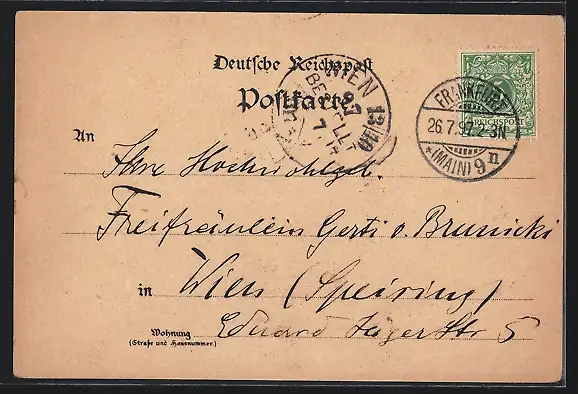 Deutsche Reichspost
Postkarte
WIEN 13/1
BESTELLT
97
FRANKFURT
26.7.97.2-3N
* (MAIN) 9 n
REICHSPOST
An
Ihre Hochwohlgeb.
Freifräulein Gerti v. Brunicki
in Wien (Speising)
Eduard Jägerstr 5
Wohnung
(Straße und Hausnummer.)